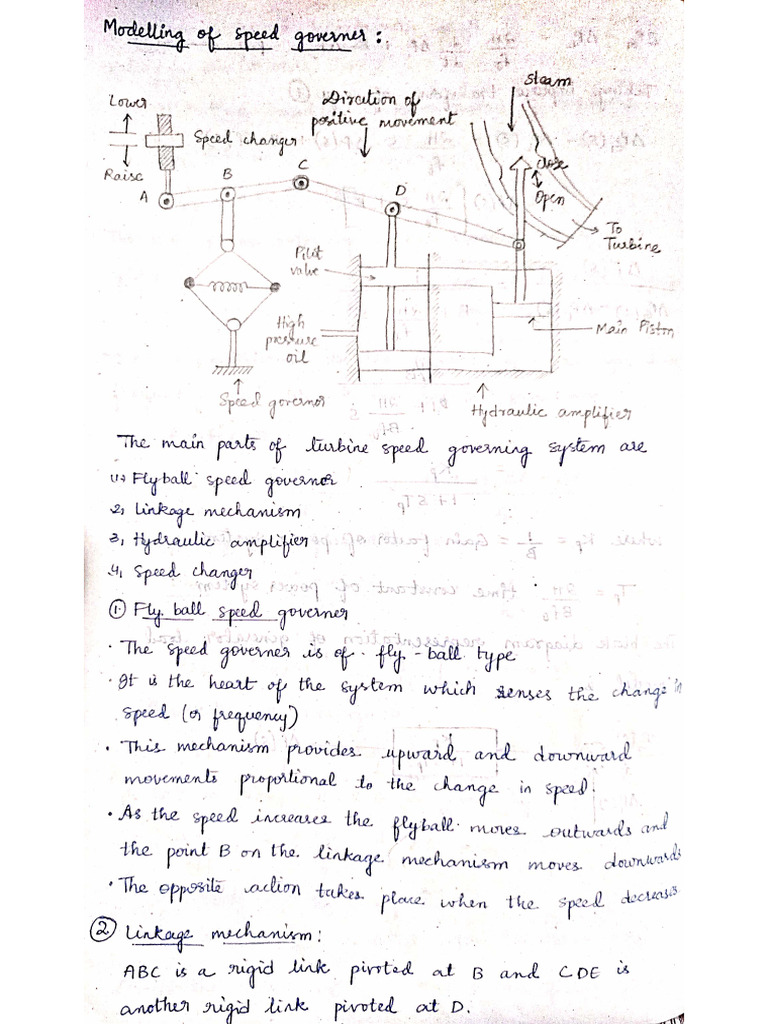 Modelling of speed governer :
Steam
Lower
Direction of
positive movement
Speed changer
Close
Raise
C
B
A
D
Open
To
Turbine
Pilot
valve
High
pressure
oil
Main Piston
Speed governor
Hydraulic amplifier
The main parts of turbine speed governing system are
1, Flyball speed governor
2, linkage mechanism
3, Hydraulic amplifier
4, Speed changer
① Fly. ball speed governer
· The speed governer is of fly-ball type
· It is the heart of the system which senses the change in
speed (or frequency)
· This mechanism provides upward and downward
movements proportional to the change in speed.
· As the speed increases the flyball moves outwards and
the point B on the linkage mechanism moves downwards
· The opposite action takes place when the speed decreases
② linkage mechanism:
ABC is a rigid link pivoted at B and CDE is
another rigid link pivoted at D.